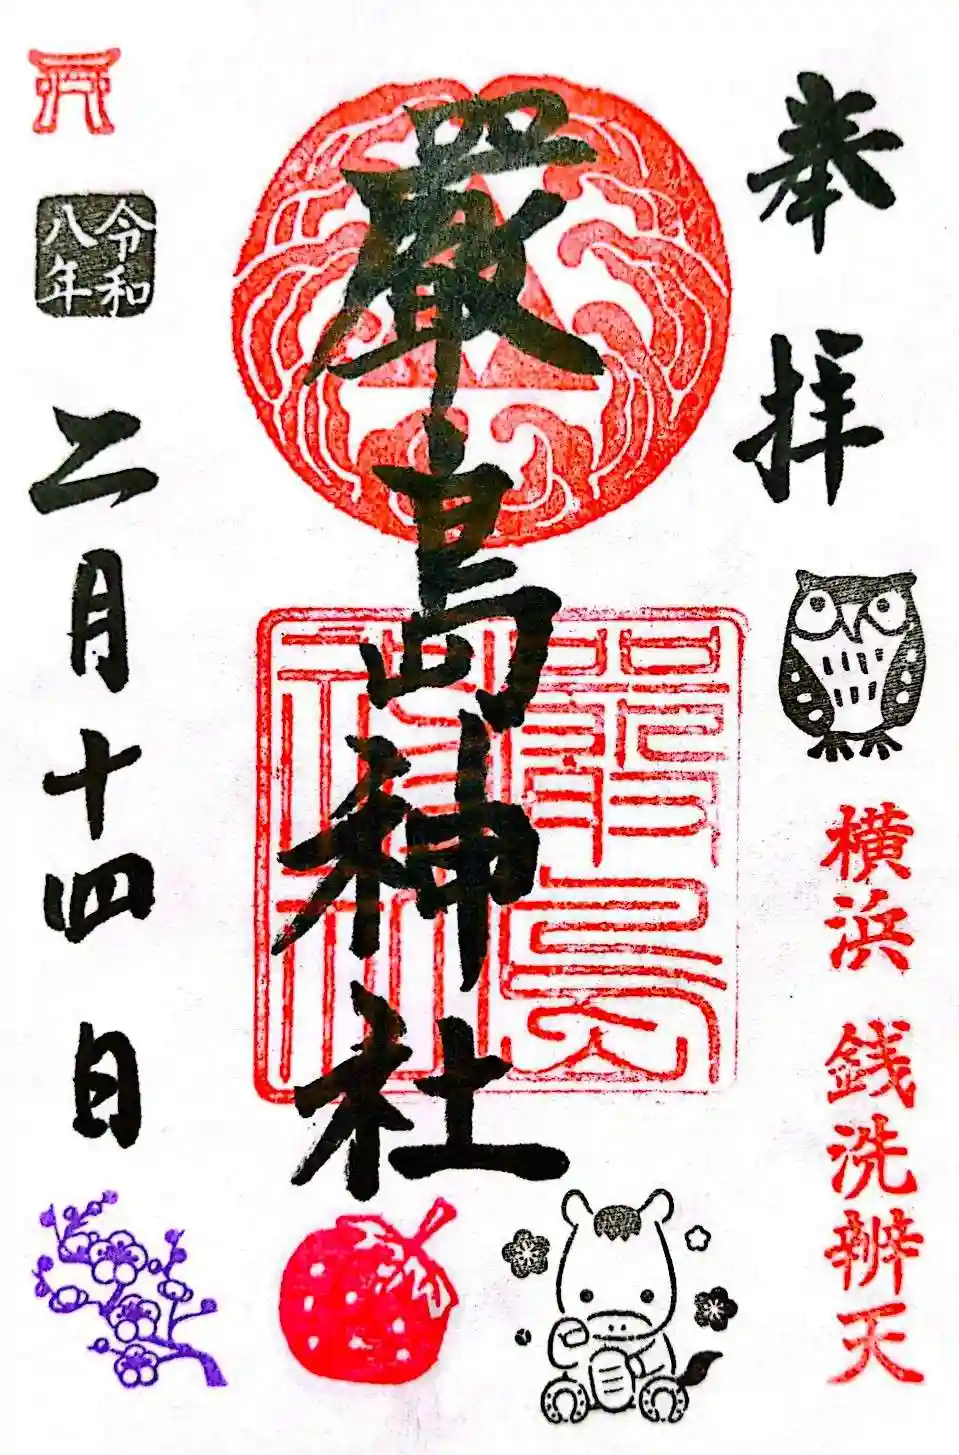 奉拝
横浜 銭洗辨天
厳島神社
嚴島
神社
令和
八年
二月十四日